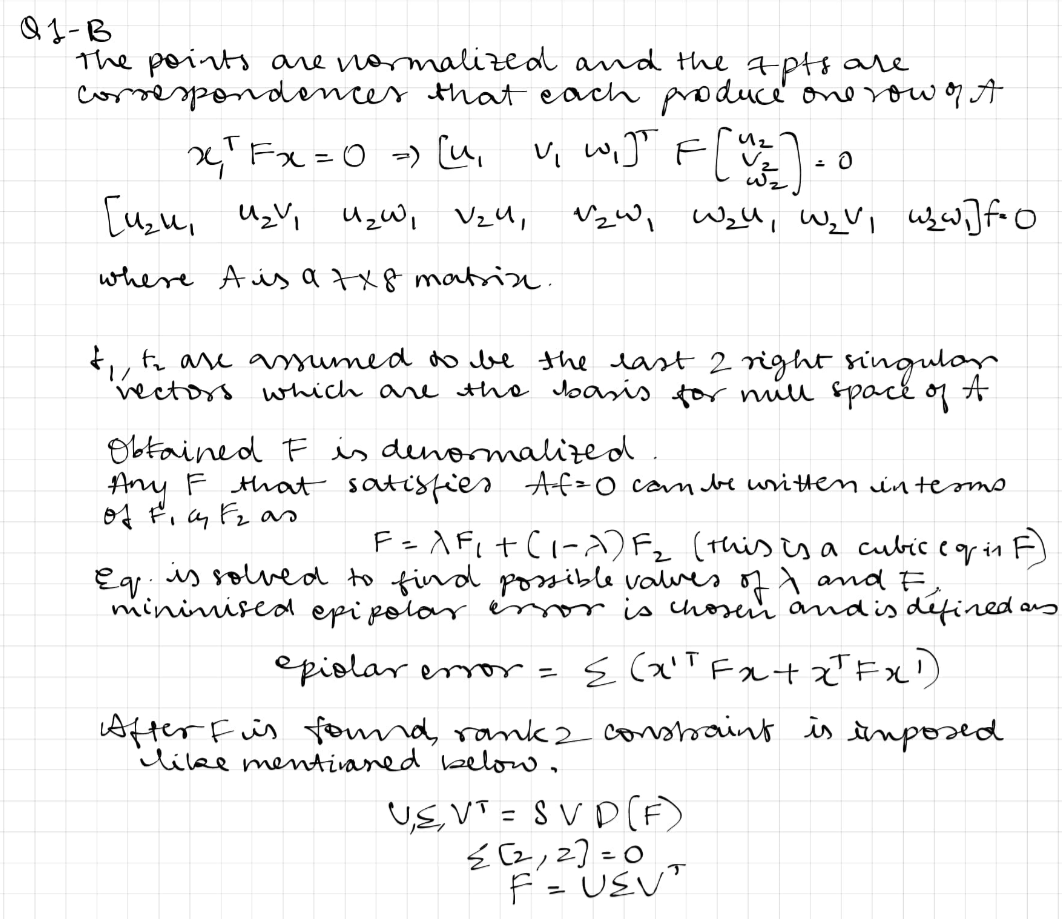 Q1-B
The points are normalized and the 7pts are
correspondences that each produce one row of A
x₁ᵀFx = 0 ⇒ [u₁ v₁ w₁]ᵀ F [u₂ v₂ w₂] = 0
[u₂u₁ u₂v₁ u₂w₁ v₂u₁ v₂w₁ w₂u₁ w₂v₁ w₂w₁]f=0
where A is a 7x8 matrix.
f₁, f₂ are assumed to be the last 2 right singular
vectors which are the basis for null space of A
Obtained F is denormalized.
Any F that satisfies Af=0 can be written in terms
of F₁ & F₂ as
F = λF₁ + (1-λ)F₂ (this is a cubic eq in F)
Eq. is solved to find possible values of λ and F,
minimised epipolar error is chosen and is defined as
epiolar error = Σ (x'ᵀFx + xᵀFx')
After F is found, rank 2 constraint is imposed
like mentioned below.
U,Σ,Vᵀ = SVD(F)
Σ[2,2] = 0
F = UΣVᵀ